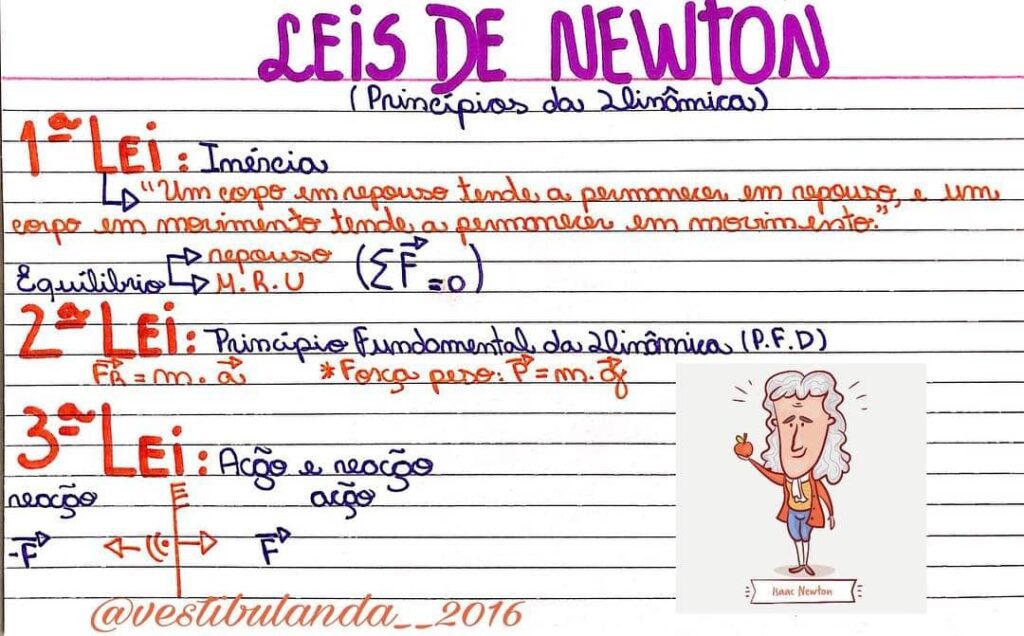 LEIS DE NEWTON
(Princípios da Dinâmica)
1ª LEi: Inércia
"Um corpo em repouso tende a permanecer em repouso, e um
corpo em movimento tende a permanecer em movimento."
Equilíbrio repouso (ΣF⃗ = 0)
M.R.U
2ª LEi: Princípio Fundamental da Dinâmica (P.F.D)
F⃗R = m. a⃗ *Força peso: P⃗ = m. g⃗
3ª LEi: Acção e reacção
reacção acção
-F⃗ F⃗
Isaac Newton
@vestibulanda__2016